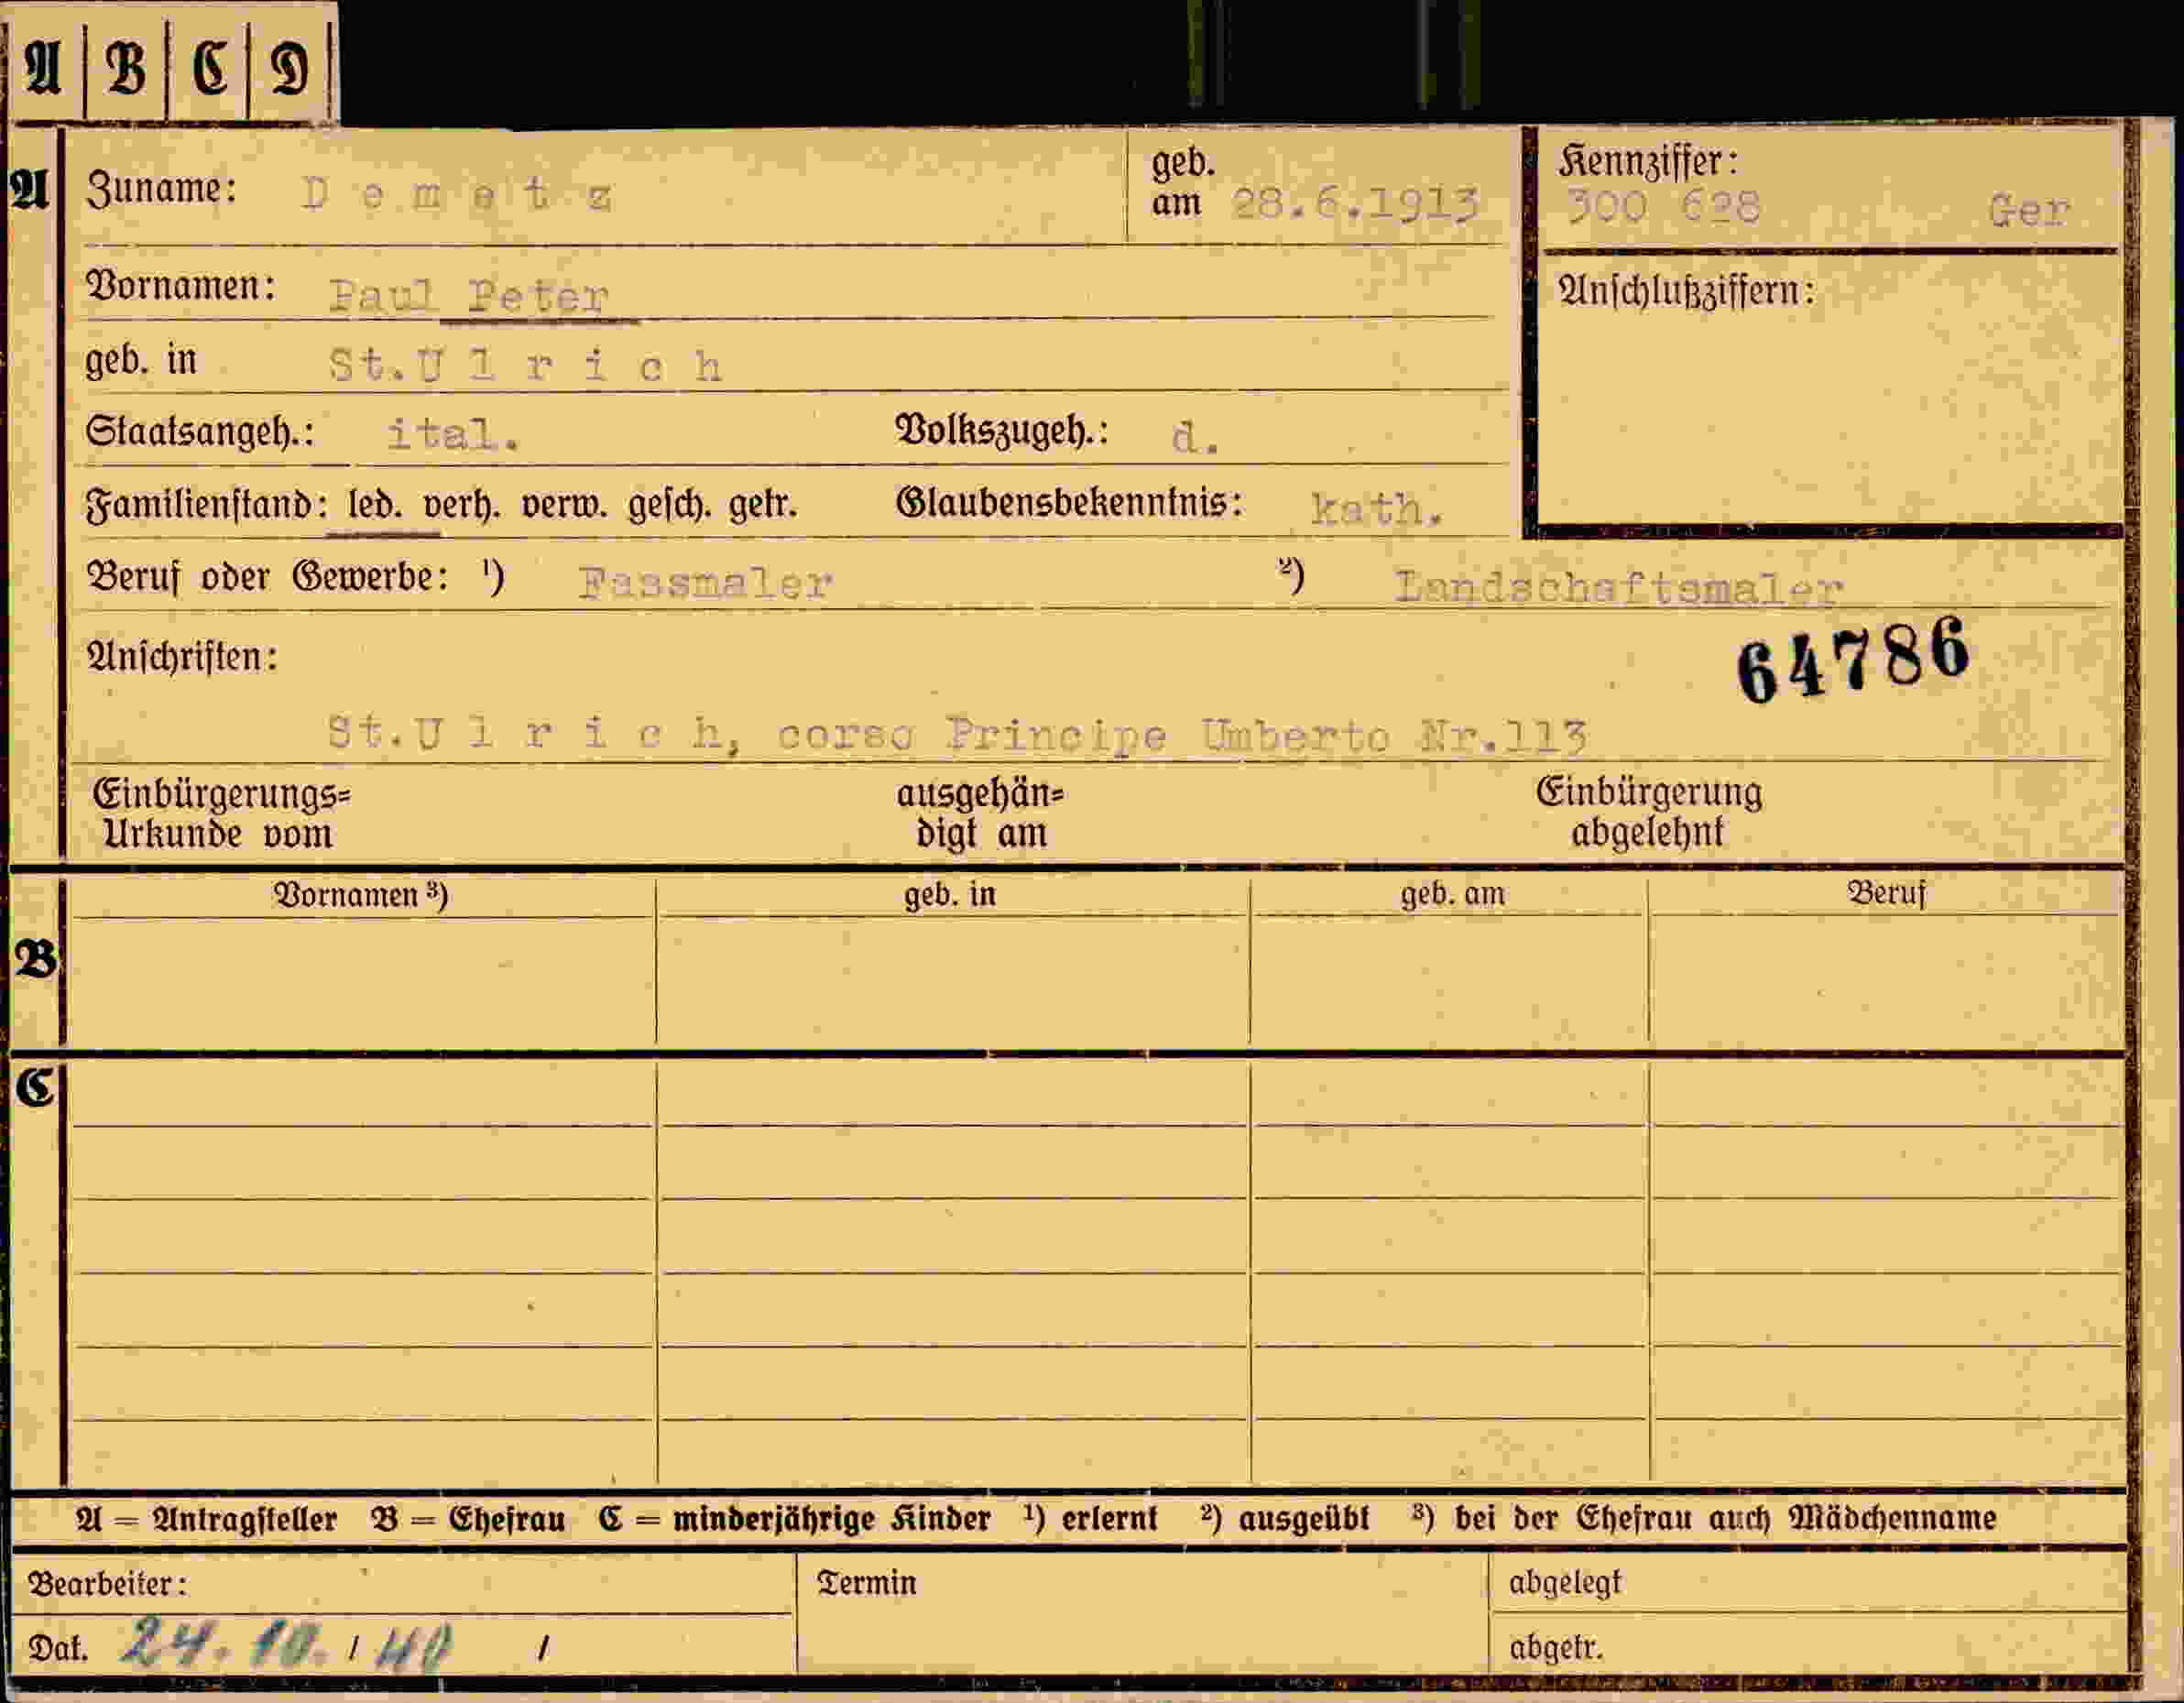 A | B | C | D |
A Zuname: D e m e t z geb. am 28.6.1913 Kennziffer: 300 628 Ger
Vornamen: Paul Peter Anschlußziffern:
geb. in St.U l r i c h
Staatsangeh.: ital. Volkszugeh.: d.
Familienstand: led. verh. verw. gesch. getr. Glaubensbekenntnis: kath.
Beruf oder Gewerbe: ¹) Fassmaler ²) Landschaftsmaler
Anschriften: 64786
St.U l r i c h, corso Principe Umberto Nr.113
Einbürgerungs= ausgehän= Einbürgerung
Urkunde vom digt am abgelehnt
Vornamen ³) geb. in geb. am Beruf
B
C
A = Antragsteller B = Ehefrau C = minderjährige Kinder ¹) erlernt ²) ausgeübt ³) bei der Ehefrau auch Mädchenname
Bearbeiter: Termin abgelegt
Dat. 24. 10. / 40 / abgetr.